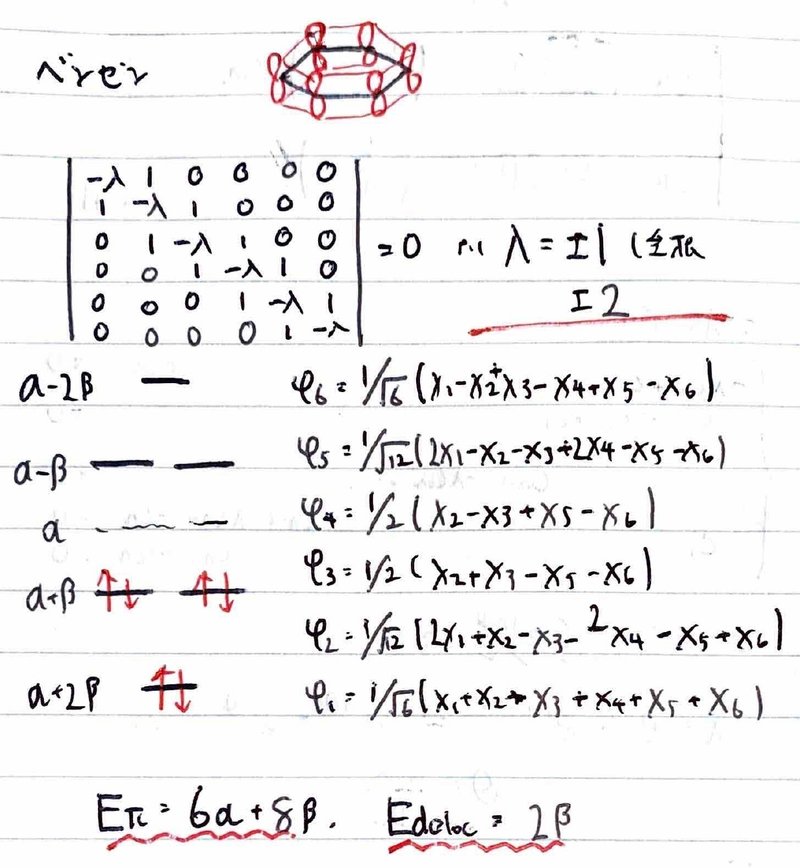 ベンゼン
-λ 1 0 0 0 0
1 -λ 1 0 0 0
0 1 -λ 1 0 0
0 0 1 -λ 1 0
0 0 0 1 -λ 1
0 0 0 0 1 -λ
=0 λ = ±1 (重根
±2
α-2β φ6 = 1/√6 (χ1-χ2+χ3-χ4+χ5-χ6)
α-β φ5 = 1/√12 (2χ1-χ2-χ3+2χ4-χ5-χ6)
α φ4 = 1/2 (χ2-χ3+χ5-χ6)
α+β φ3 = 1/2 (χ2+χ3-χ5-χ6)
φ2 = 1/√12 (2χ1+χ2-χ3-2χ4-χ5+χ6)
α+2β φ1 = 1/√6 (χ1+χ2+χ3+χ4+χ5+χ6)
Eπ = 6α+8β. Edeloc = 2β